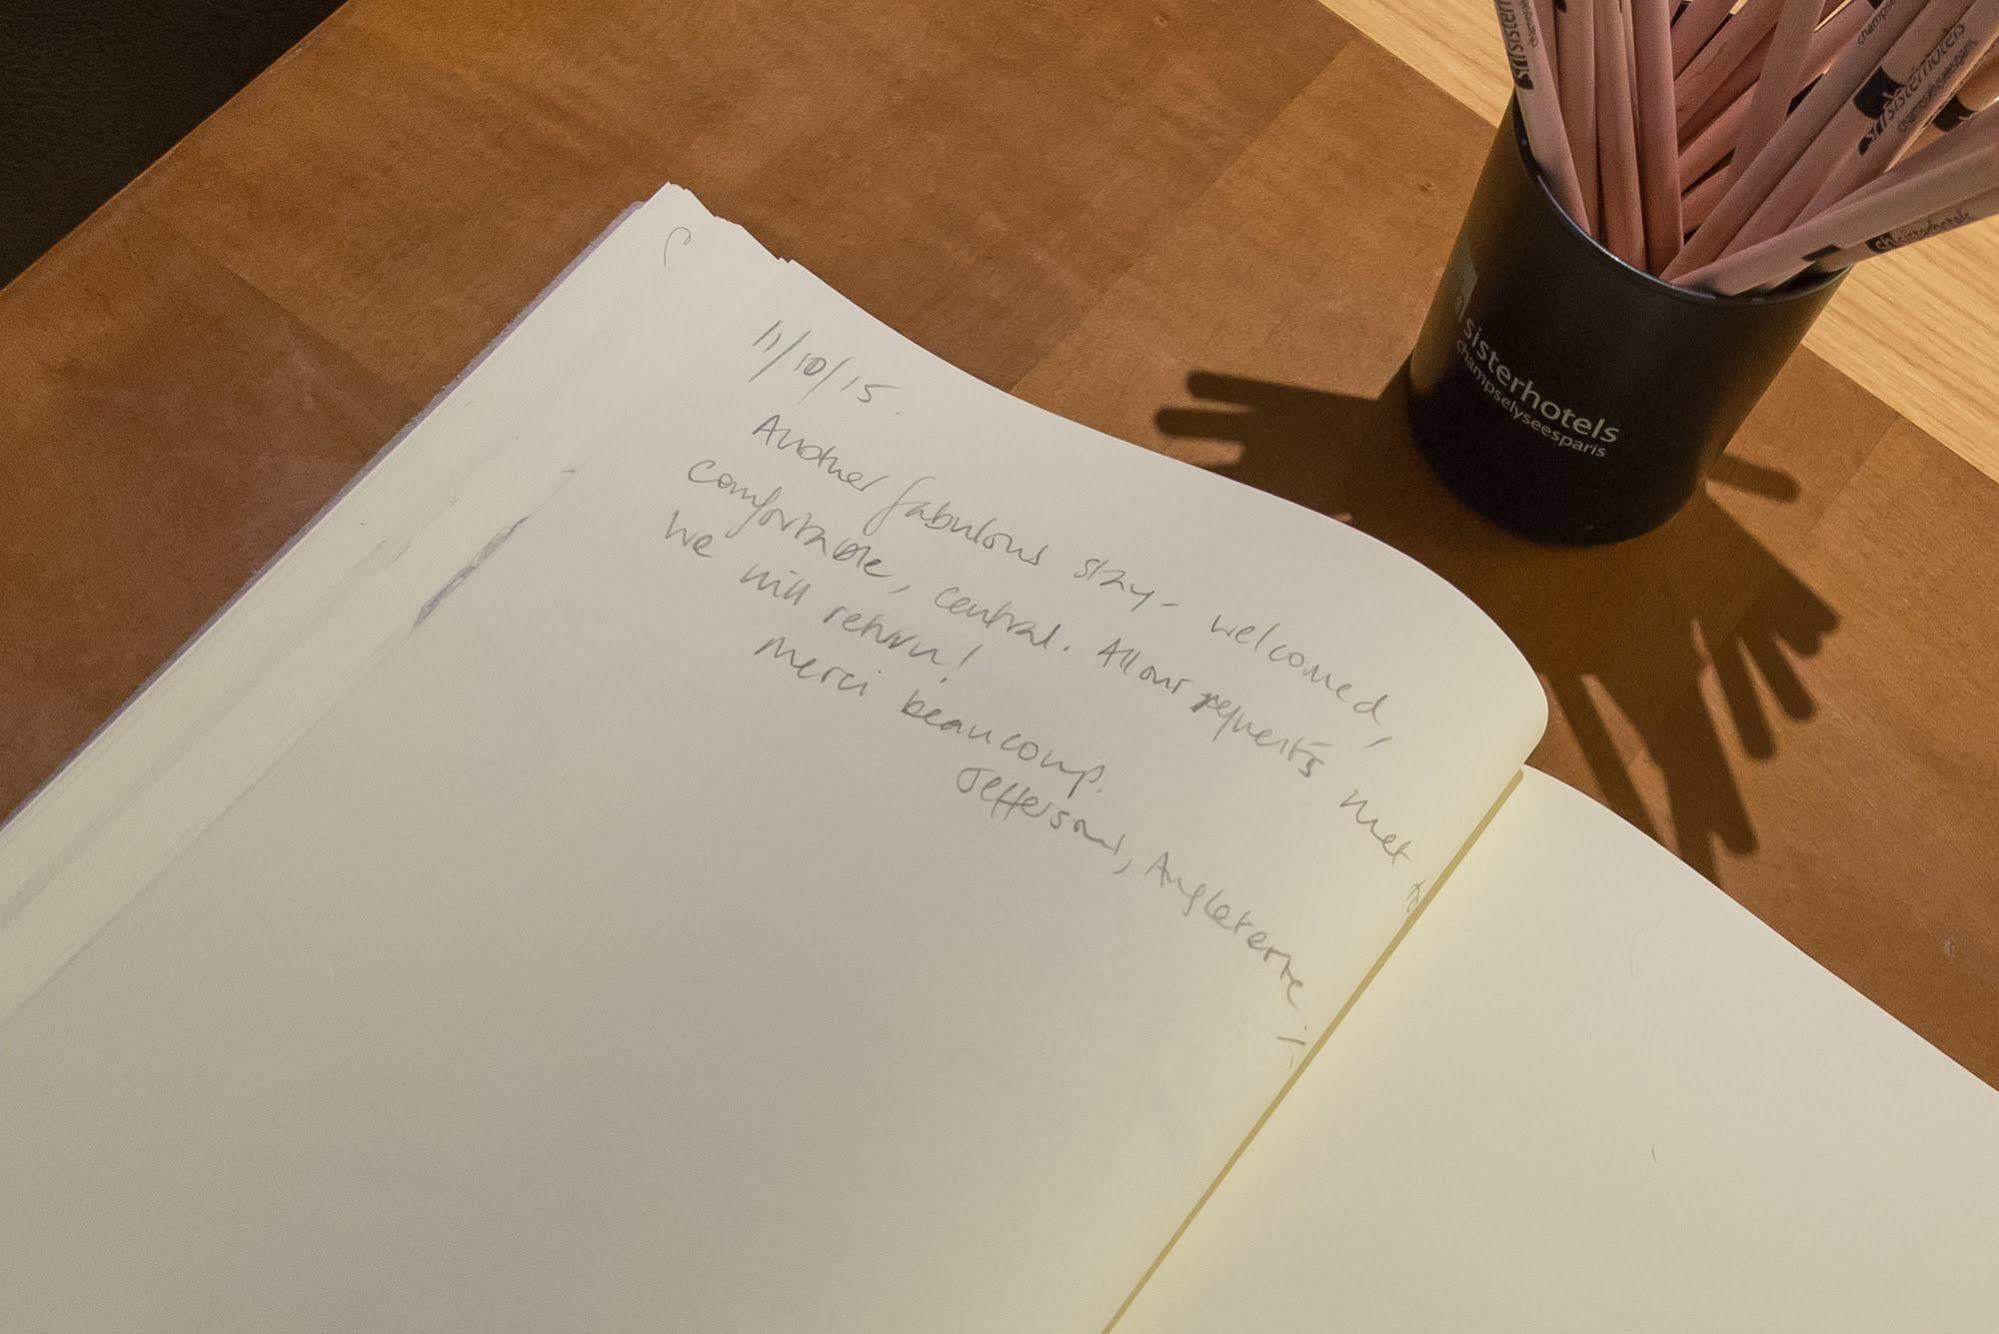 11/10/15.
Another fabulous stay - welcomed,
comfortable, central. All our requests met
We will return!
Merci beaucoup.
Jeffersons, Angleterre
sisterhotels
champselyseesparis
sisterhotels
champselyseesparis
sisterhotels